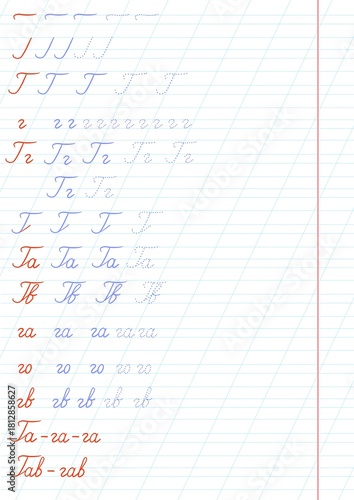 Г Г Г Г Г
г г г г г г г г г г г
Гг Гг Гг Гг Гг
Гг Гг
Г Г Г Г
Га Га Га Га
Гв Гв Гв Гв
га га га га га
го го го го го
гв гв гв гв гв
Га-га-га
Гав-гав
Adobe Stock | #1812858627